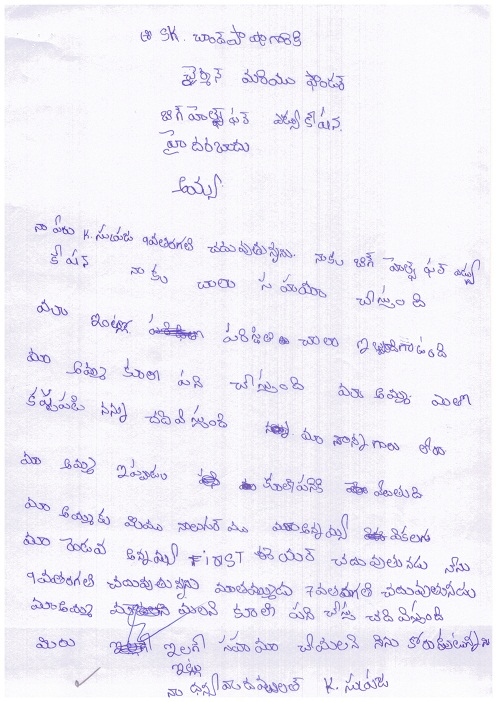 SK. చాంద్ పాషాగారికి
చైర్మన్ మరియు ఫౌండర్
బిగ్ హెల్ప్ ఫర్ ఎడ్యుకేషన్.
హైదరబాదు
అయ్య
నా పేరు K. సుప్రజ 9వతరగతి చదువుతున్నాను. నాకు బిగ్ హెల్ప్ ఫర్ ఎడ్యు
కేషన్ నాకు చాలా సహయం చేస్తుంది
మా ఇంట్లో పరిస్థితి చాలా ఇబ్బందిగా ఉంది
మా అమ్మ కూలి పని చేస్తుంది మా అమ్మ ఎంతో
కష్టపడి నన్ను చదివిస్తుంది మా నాన్నగారు లేరు
మా అమ్మే ఇప్పుడు కూలిపనికి వెలుతుది
మా అమ్మకు మేము నాలుగురము అన్నయ్య వికలాంగ
మా రెండువ అన్నయ్య FIRST ఇయర్ చదువుతునడు నేను
9వతరగతి చదువుతున్నాను మాతమ్ముడు 7వతరగతి చదువుతునడు
మాఅమ్మ మలని కూలి పని చేస్తు చదివిస్తుంది
మిరు ఇలాగే సహాయం చేయలని నేను కోరుకుంటున్నాను
ఇట్లు
నా ధన్యవాదములతో K. సుప్రజ